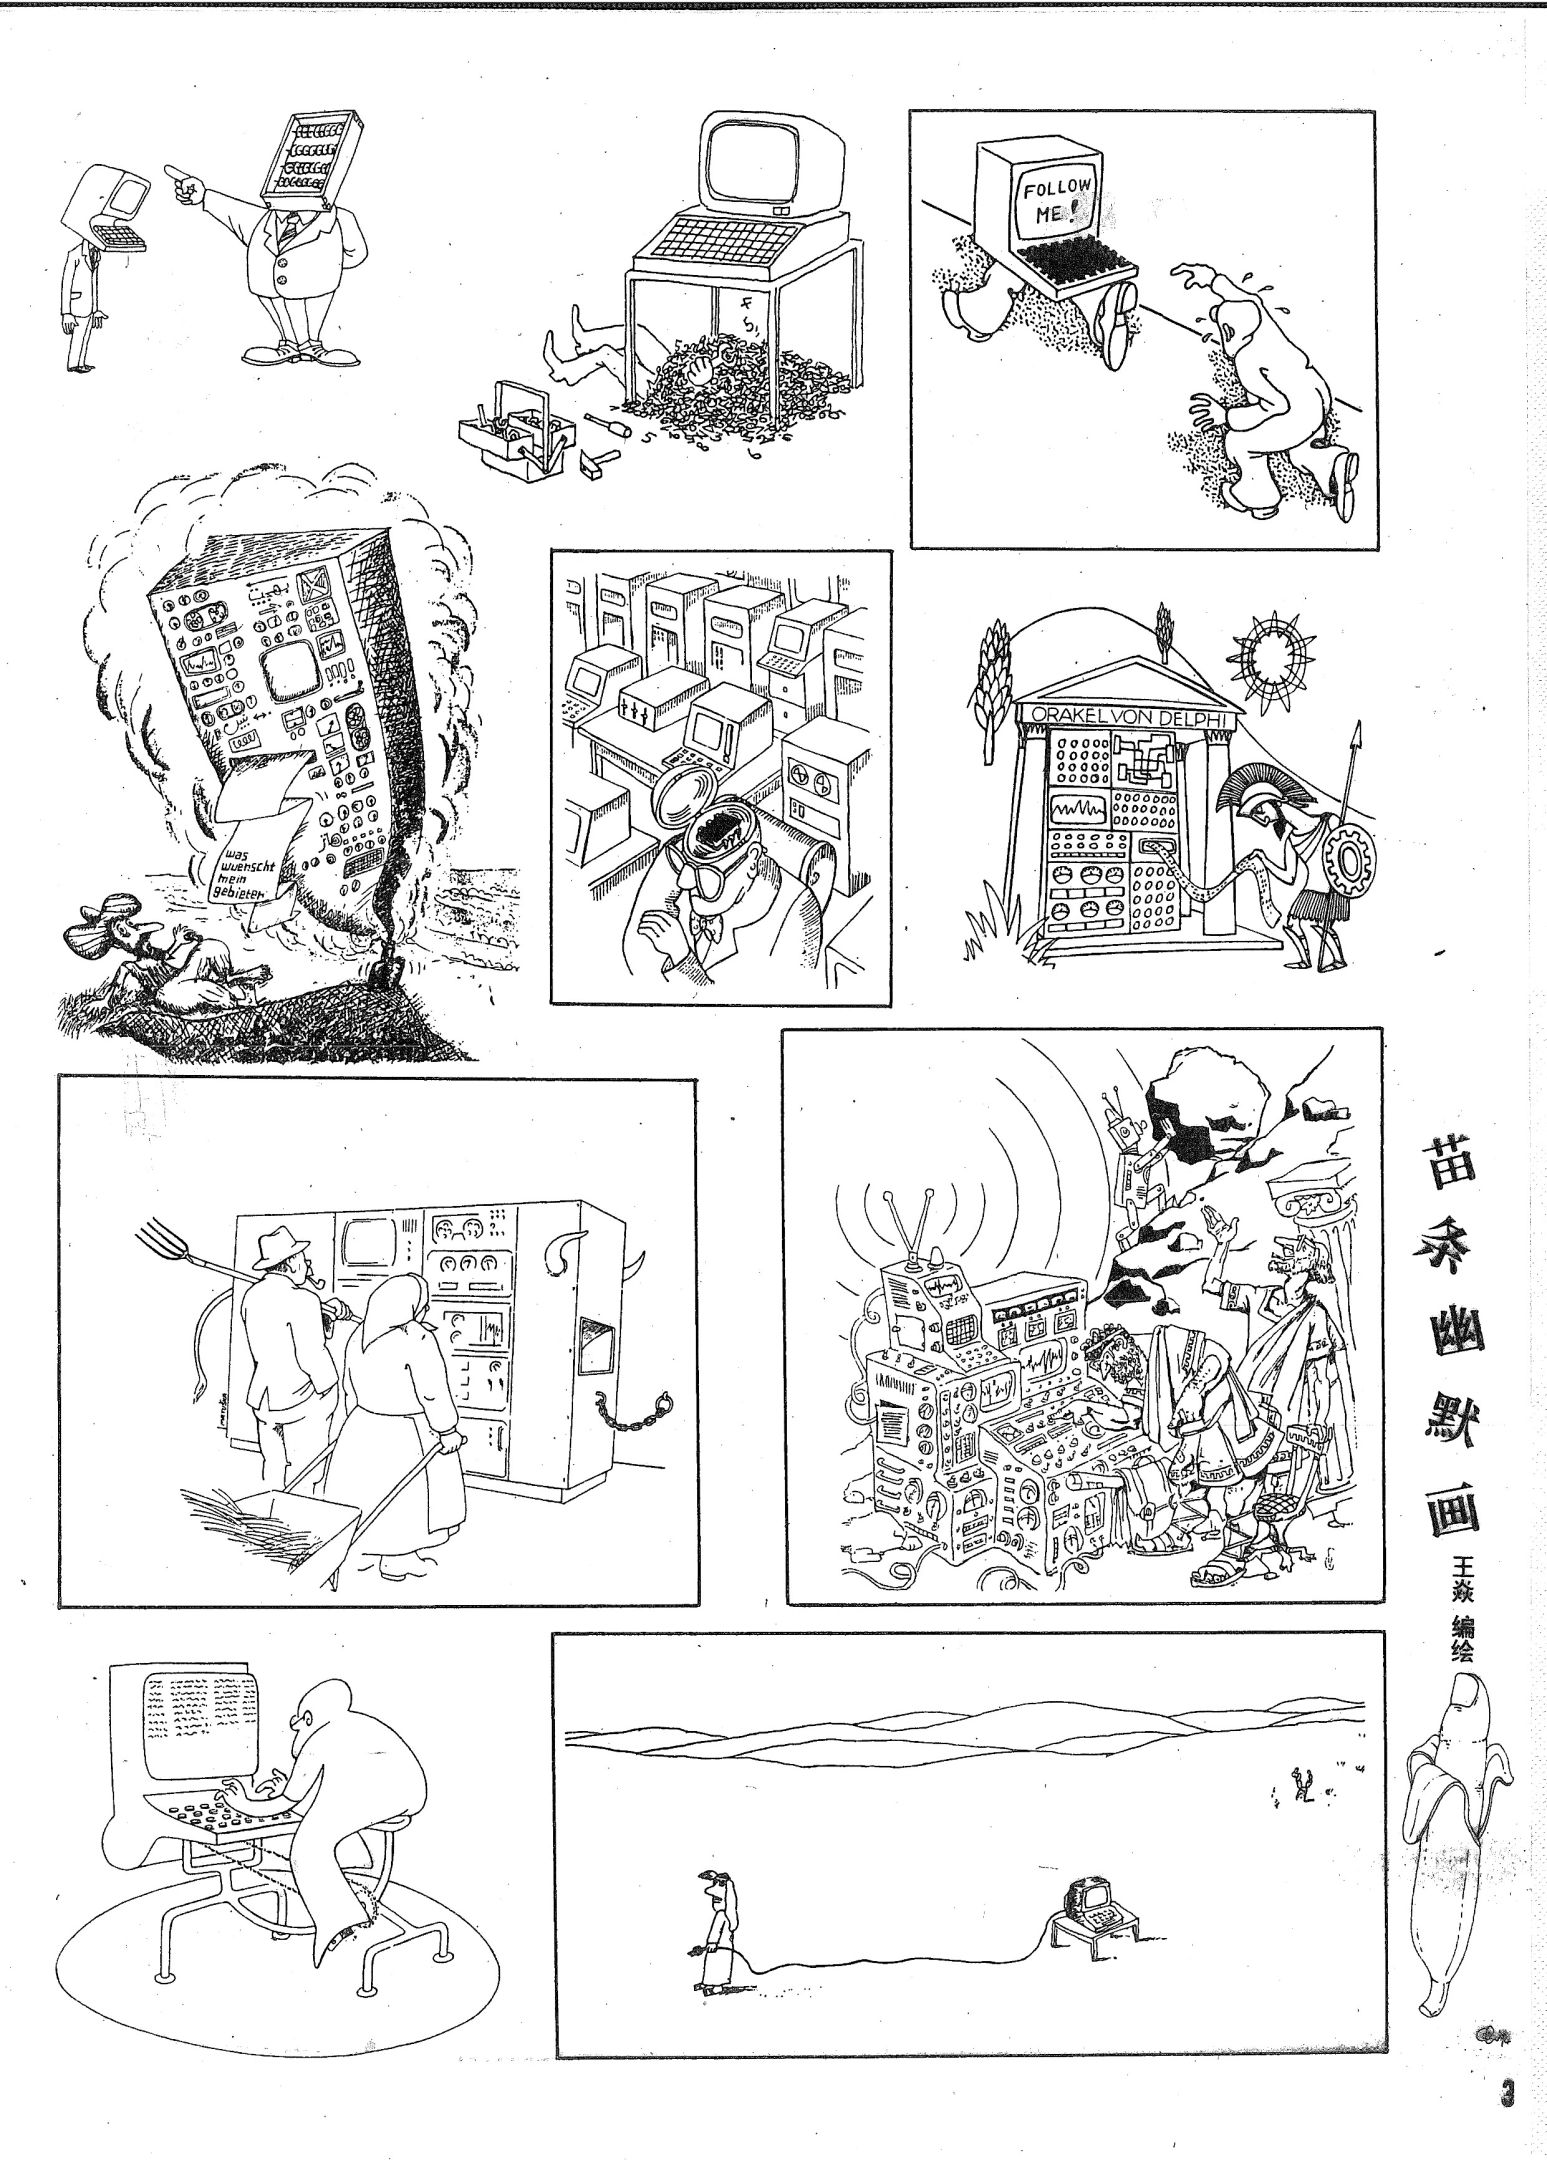 FOLLOW
ME!
was
wuenscht
mein
gebieter
ORAKEL VON DELPHI
苗忝幽默画
王焱 编绘
3